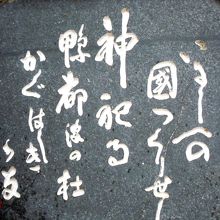 いにしへの
國つくりせし
神祀る
鴨都波の杜
かぐはしき